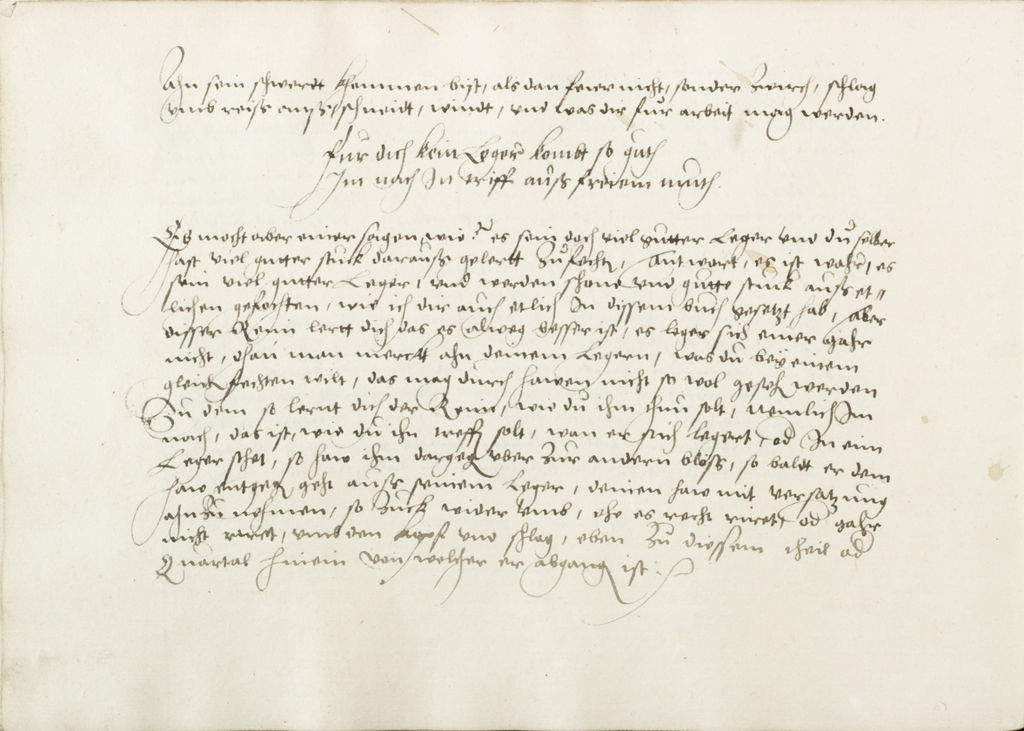 Ahn sein schwerdt khommen bist, als dan feier nicht, sonder Zwirch, schlag
vmb reiß auß, schneidt, windt, vnd was dir fur arbeit mag werden.
fur dich kein Leger kombt so guth
Im nach In triff auß freiem muth.
Es mocht aber einer sagen, wie? es sein doch viel gutter Leger vnd du selber
hast viel gutter stuck darauß gelertt Zu fechten, Antwort, es ist wahr, es
sein viel gutter Leger, vnd werden schone vnd gutte stuck auß et„
lichen gefochten, wie ich dir auch etlich In dissem buch gesetzt hab, aber
disser Reim lertt dich das es alweg besser ist, es leger sich einer gahr
nicht, dhan man merckt ahn deinem Legern, was du bey einem
gleich fechten wilt, das mag durch hawen nicht so wol geseh werden
Zu dem so lernt dich der Reim, wie du ihm thun solt, nemlich Im
nach, das ist, wie du ihn treffen solt, wan er sich legert, od In eim
Leger sthet, so haw ihm dargegen vber Zur andern blöß, so baldt er dem
haw entgegen geht auß seinem Leger, deinen haw mit versatzung
ahn Zu nehmen, so Zuck wider vmb, ehe es recht ruret, od gahr
nicht ruret, vmb den kopf vnd schlag, eben Zu diessem theil od
Quartal hinein von welcher er abgang ist.